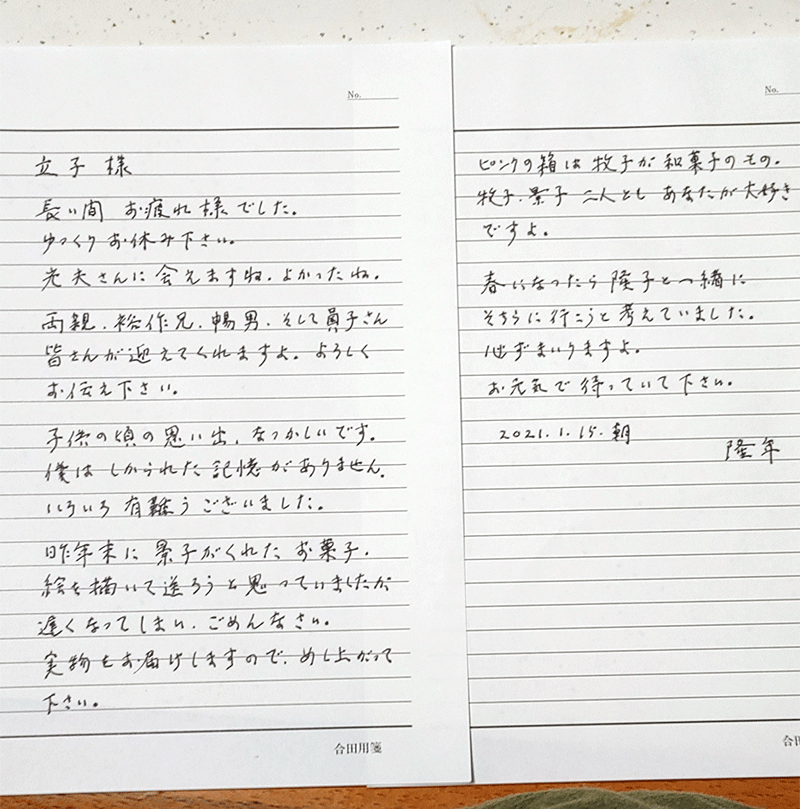 No.
立子様
長い間 お疲れ様でした。
ゆっくりお休み下さい。
光夫さんに会えますね。よかったね。
両親、裕作兄、暢男、そして員子さん
皆さんが迎えてくれますよ。よろしく
お伝え下さい。
子供の頃の思い出、なつかしいです。
僕はしかられた記憶がありません。
いろいろ有難うございました。
昨年末に景子がくれたお菓子、
絵を描いて送ろうと思っていましたが
遅くなってしまい、ごめんなさい。
実物をお届けしますので、めし上がって
下さい。
合田用箋
No.
ピンクの箱は牧子が和菓子のもの。
牧子、景子 二人とも あなたが大好き
ですよ。
春になったら隆子と一緒に
そちらに行こうと考えていました。
必ずまいりますよ。
お元気で待っていて下さい。
2021.1.15.朝
隆年
合